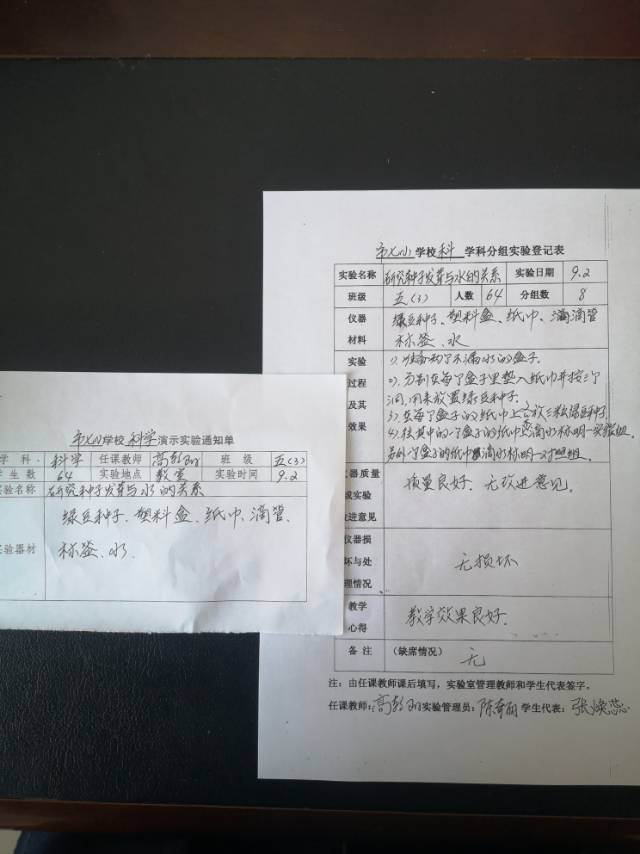 学校科 学科分组实验登记表
实验名称 研究种子发芽与水的关系 实验日期 9.2
班级 五(3) 人数 64 分组数 8
仪器材料 绿豆种子、塑料盒、纸巾、滴管
标签、水
实验过程及其效果 1)、准备两个不漏水的盒子.
2)、分别在每个盒子里垫入纸巾并按三个
洞,用来放置绿豆种子.
3)在每个盒子的纸巾上各放三粒绿豆种子.
4)往其中的一个盒子的纸巾滴水标明—实验组.
另外一个盒子的纸巾滴水标明—对照组.
仪器质量或实验改进意见 质量良好、无改进意见.
仪器损坏与处理情况 无损坏
教学心得 教学效果良好.
备注 (缺席情况) 无
注:由任课教师课后填写,实验室管理教师和学生代表签字。
任课教师: 实验管理员: 学生代表:
学校科学演示实验通知单
学科 科学 任课教师 班级 五(3)
学生数 64 实验地点 教室 实验时间 9.2
实验名称 研究种子发芽与水的关系
实验器材 绿豆种子、塑料盒、纸巾、滴管、
标签、水.